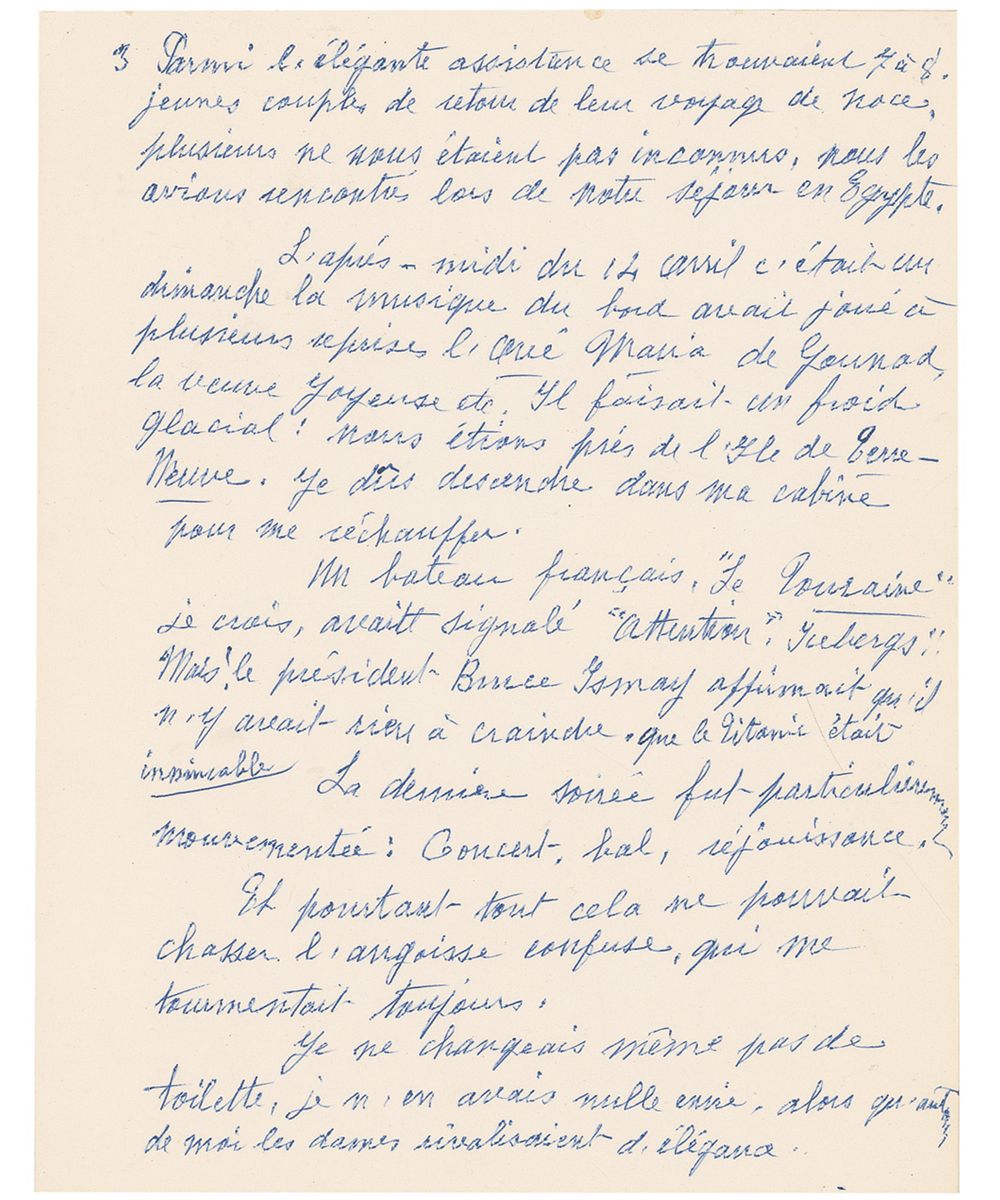 3 Parmi l'élégante assistance se trouvaient 7 à 8.
jeunes couples de retour de leur voyage de noce,
plusieurs ne nous étaient pas inconnus, nous les
avions rencontrés lors de notre séjour en Egypte.
L'après-midi du 14 avril c'était un
dimanche la musique du bord avait joué à
plusieurs reprises l'Avé Maria de Gounod,
la veuve Joyeuse etc. Il faisait un froid
glacial: nous étions près de l'Ile de Terre-
Neuve. Je dûs descendre dans ma cabine
pour me réchauffer.
Un bateau français, "Le Touraine"
je crois, avait signalé "Attention", Icebergs"!
Mais le président Bruce Ismay affirmait qu'il
n'y avait rien à craindre, que le Titanic était
La dernière soirée fut particulièrement
mouvementée: Concert, bal, réjouissance.
Et pourtant tout cela ne pouvait
chasser l'angoisse confuse, qui me
tourmentait toujours.
Je ne changeais même pas de
toilette, je n'en avais nulle envie, alors qu'autour
de moi les dames rivalisaient d'élégance.